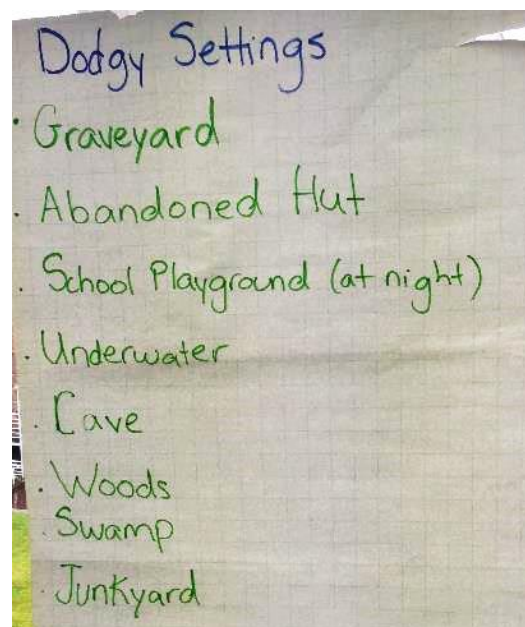 Dodgy Settings
· Graveyard
· Abandoned Hut
· School Playground (at night)
· Underwater
· Cave
· Woods
· Swamp
· Junkyard